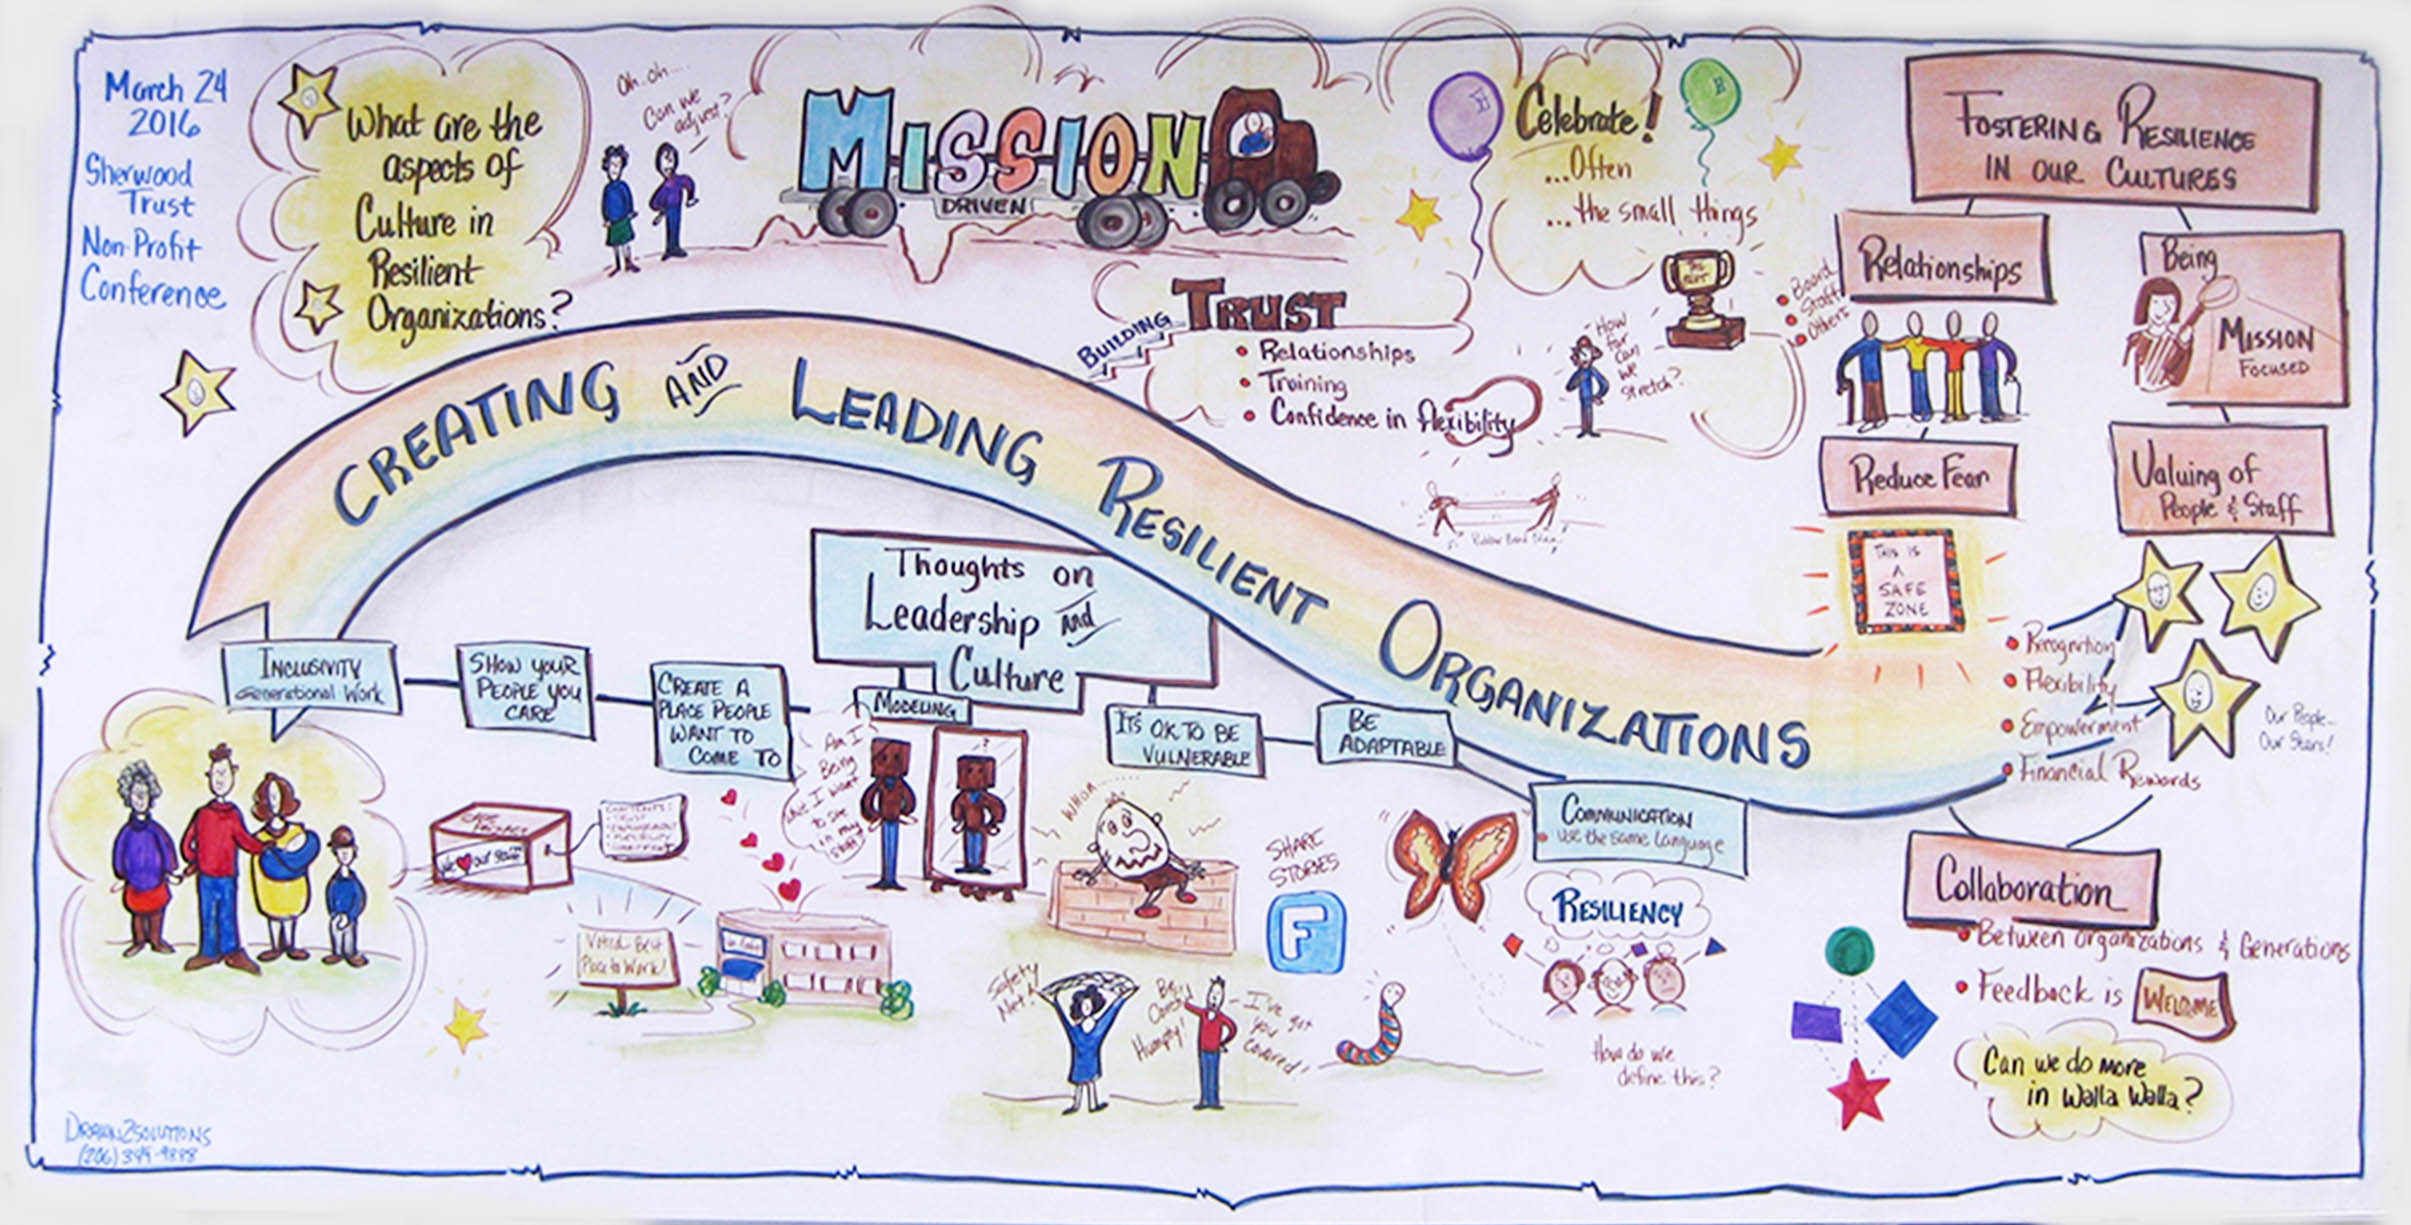 March 24
2016
Sherwood
Trust
Non-Profit
Conference
What are the
aspects of
Culture in
Resilient
Organizations?
Oh..oh....
Can we
adjust?
MISSION
DRIVEN
Celebrate!
...Often
...the small things
Board
Staff
Others
BUILDING
TRUST
Relationships
Training
Confidence in flexibility
How
far
can
we
stretch?
FOSTERING RESILIENCE
IN OUR CULTURES
Relationships
Being
MISSION
FOCUSED
Reduce Fear
Valuing of
People & Staff
THIS IS
A
SAFE
ZONE
Recognition
Flexibility
Empowerment
Financial Rewards
Our People..
Our Stars!
Collaboration
Between Organizations & Generations
Feedback is WELCOME
Can we do more
in Walla Walla?
CREATING AND LEADING RESILIENT ORGANIZATIONS
Thoughts on
Leadership and
Culture
INCLUSIVITY
Generational Work
SHOW YOUR
PEOPLE YOU
CARE
CREATE A
PLACE PEOPLE
WANT TO
COME TO
MODELING
IT'S OK TO BE
VULNERABLE
BE
ADAPTABLE
COMMUNICATION
Use the same language
Am I
Being
what I want
to see
in my
staff
We ♥ our staff
Voted Best
Place to Work!
WHOA...
SHARE
STORIES
F
Safety
Net!
Be
Careful
Humpty!
I've got
you
covered!
RESILIENCY
How do we
define this?
DRAWN2SOLUTIONS
(206)